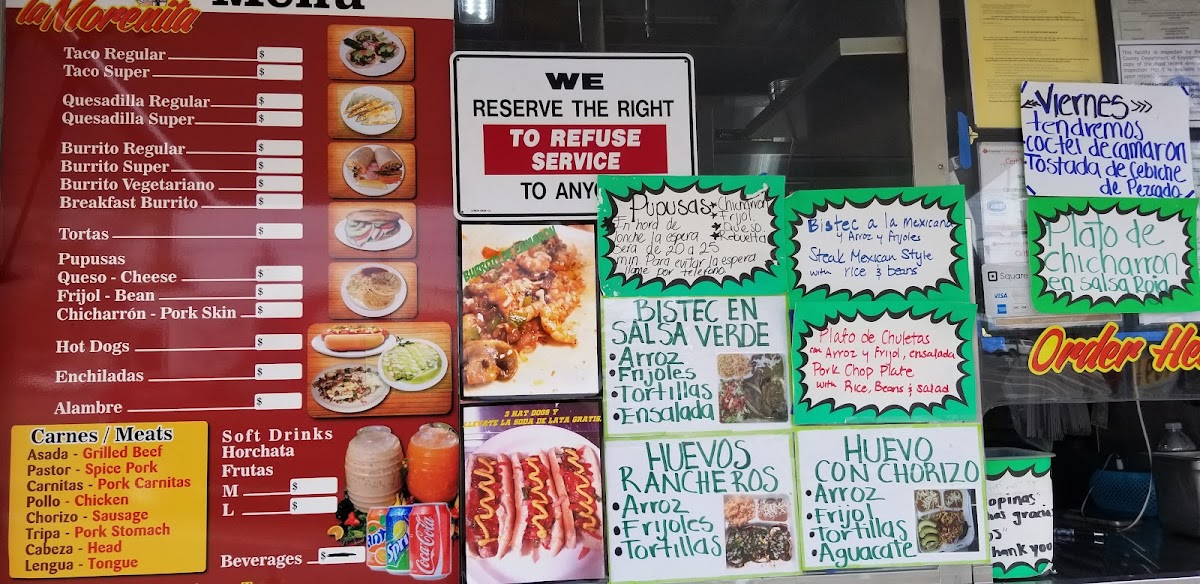 Menu
la Morenita
Taco Regular $
Taco Super $
Quesadilla Regular $
Quesadilla Super $
Burrito Regular $
Burrito Super $
Burrito Vegetariano $
Breakfast Burrito $
Tortas $
Pupusas
Queso - Cheese $
Frijol - Bean $
Chicharrón - Pork Skin $
Hot Dogs $
Enchiladas $
Alambre $
Carnes / Meats
Asada - Grilled Beef
Pastor - Spice Pork
Carnitas - Pork Carnitas
Pollo - Chicken
Chorizo - Sausage
Tripa - Pork Stomach
Cabeza - Head
Lengua - Tongue
Soft Drinks
Horchata
Frutas
M $
L $
Beverages $
Coca-Cola
WE
RESERVE THE RIGHT
TO REFUSE
SERVICE
TO ANYO
2 HAT DOGS Y
LLEVATE LA SODA DE LATA GRATIS.
Pupusas
En hora de
lonche la espera
sera de 20 a 25
min. Para evitar la espera
llame por telefono.
* Chicharron
* Frijol
* Queso
* Rebuelta
BISTEC EN
SALSA VERDE
• Arroz
• Frijoles
• Tortillas
• Ensalada
HUEVOS
RANCHEROS
• Arroz
• Frijoles
• Tortillas
Bistec a la Mexicana
y Arroz y Frijoles
Steak Mexican Style
with rice & beans
Plato de Chuletas
con Arroz y Frijol, ensalada
Pork Chop Plate
with Rice, Beans & salad
HUEVO
CON CHORIZO
• Arroz
• Frijol
• Tortillas
• Aguacate
Viernes
tendremos
coctel de camaron
Tostada de Cebiche
de Pezcado
Plato de
chicharron
en salsa Roja
Square
VISA
Order He
opinas"
has gracia
hank you